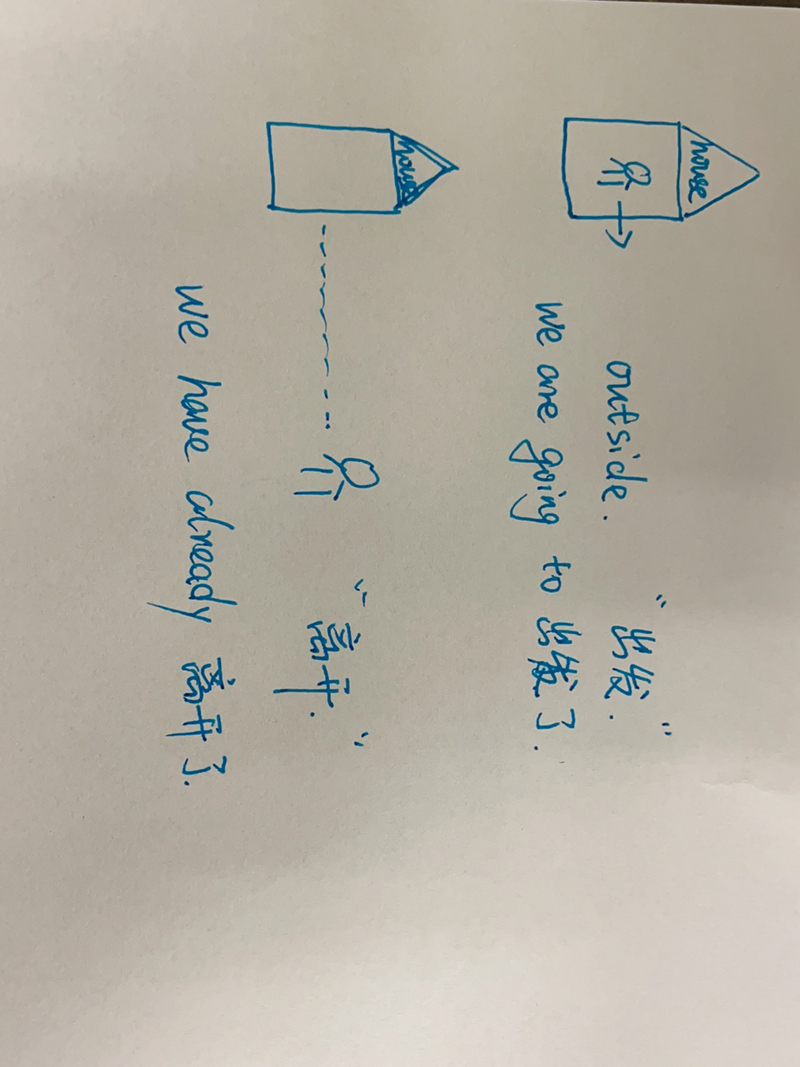 house
outside. "出发."
we are going to 出发了.
house
"离开."
we have already 离开了.